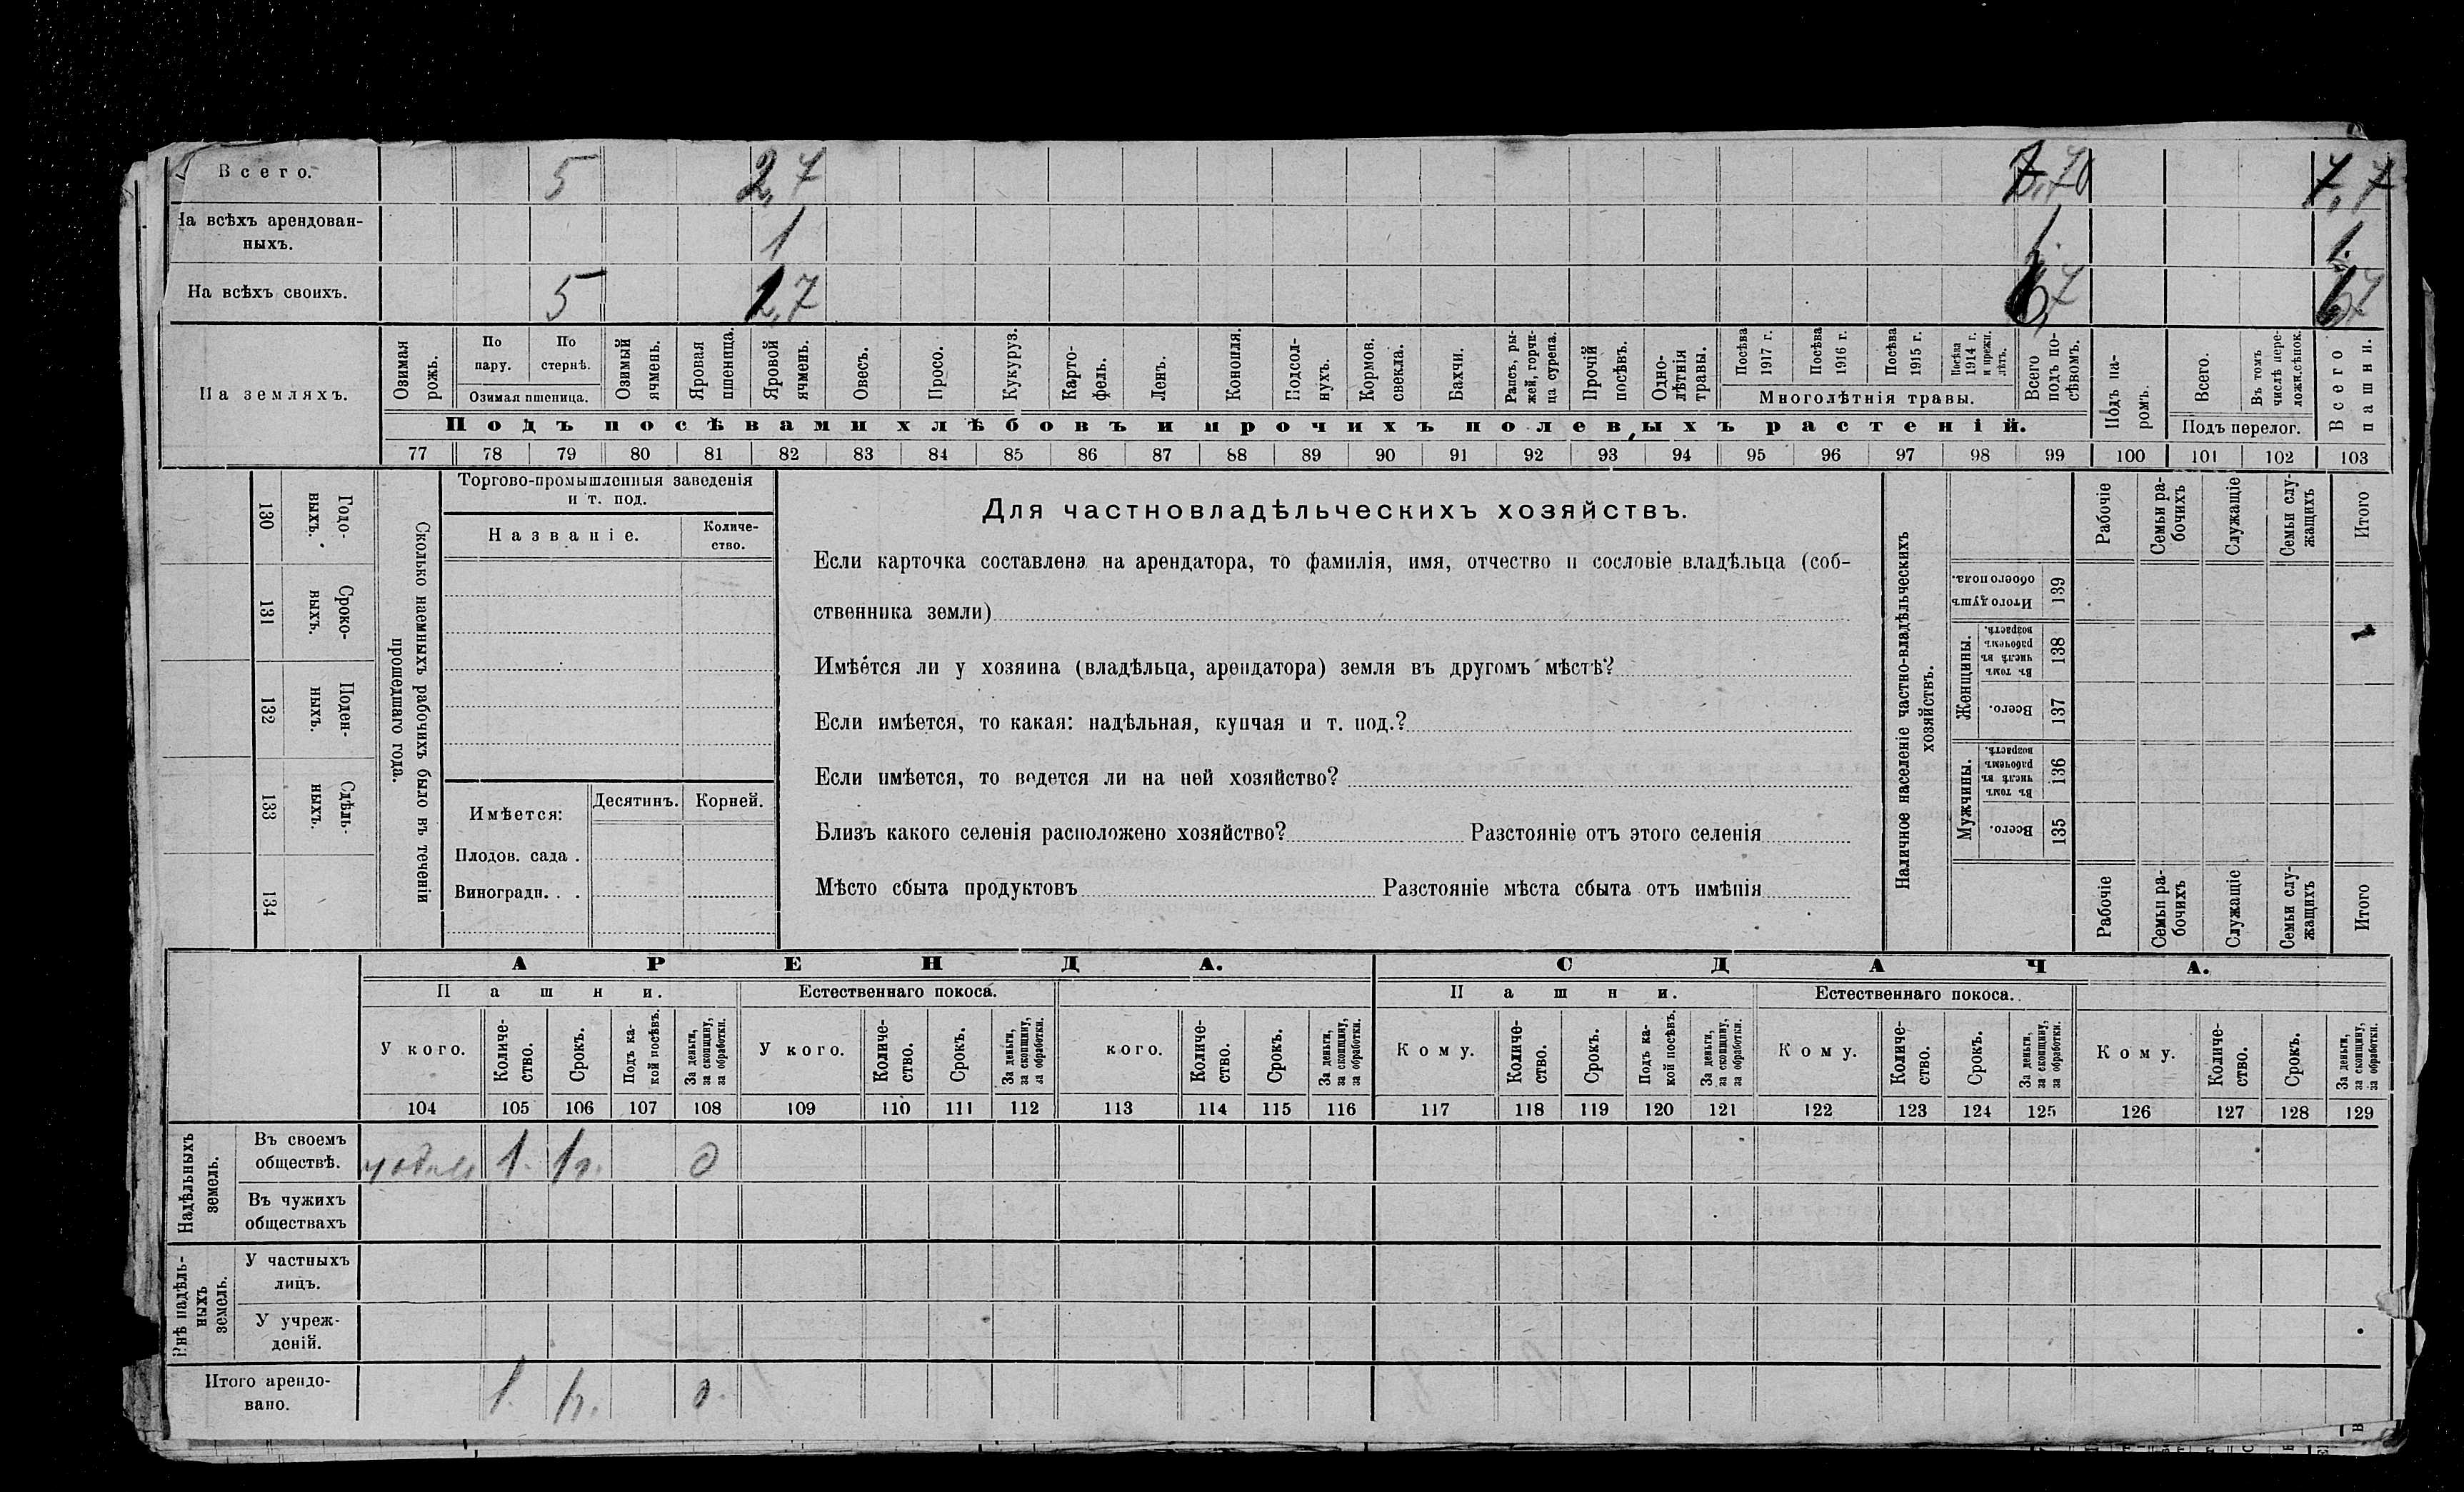 Всего. 5 2,7 7,70 7,7
На всѣхъ арендован-
ныхъ. 1 1. 1.
На всѣхъ своихъ. 5 1,7 6,7 6,7
На земляхъ.
Озимая рожь.
По пару.
По стернѣ.
Озимая пшеница.
Озимый ячмень.
Яровая пшеница.
Яровой ячмень.
Овесъ.
Просо.
Кукуруз.
Карто-
фель.
Ленъ.
Конопля.
Подсол-
нухъ.
Кормов.
свекла.
Бахчи.
Рапсъ, ры-
жей, горчи-
ца сурепа.
Прочій
посѣвъ.
Одно-
лѣтнія
травы.
Посѣва
1917 г.
Посѣва
1916 г.
Посѣва
1915 г.
Посѣва
1914 г.
и прежн.
лѣтъ.
Многолѣтнія травы.
Всего
подъ по-
сѣвомъ.
Подъ па-
ромъ.
Всего.
Въ томъ
числѣ пере-
лож.сѣнок.
Подъ перелог.
Всего
пашни.
Подъ посѣвами хлѣбовъ и прочихъ полевыхъ растеній.
77 78 79 80 81 82 83 84 85 86 87 88 89 90 91 92 93 94 95 96 97 98 99 100 101 102 103
130 Годо-
выхъ.
131 Сроко-
ныхъ.
132 Поден-
ныхъ.
133 Сдѣль-
ныхъ.
134
Сколько наемныхъ рабочихъ было въ теченіи
прошедшаго года.
Торгово-промышленныя заведенія
и т. под.
Названіе.
Количе-
ство.
Имѣется:
Десятинъ.
Корней.
Плодов. сада .
Виноградн. . .
Для частновладѣльческихъ хозяйствъ.
Если карточка составлена на арендатора, то фамилія, имя, отчество и сословіе владѣльца (соб-
ственника земли)
Имѣется ли у хозяина (владѣльца, арендатора) земля въ другомъ мѣстѣ?
Если имѣется, то какая: надѣльная, купчая и т. под.?
Если имѣется, то ведется ли на ней хозяйство?
Близъ какого селенія расположено хозяйство? Разстояніе отъ этого селенія
Мѣсто сбыта продуктовъ Разстояніе мѣста сбыта отъ имѣнія
Наличное населеніе частно-владѣльческихъ
хозяйствъ.
Рабочіе
Семьи ра-
бочихъ
Служащіе
Семьи слу-
жащихъ
Итого
Итого душъ
обоего пола. 139
Женщины.
Въ томъ
числѣ въ
рабочемъ
возрастѣ. 138
Всего. 137
Мужчины.
Въ томъ
числѣ въ
рабочемъ
возрастѣ. 136
Всего. 135
Рабочіе
Семьи ра-
бочихъ
Служащіе
Семьи слу-
жащихъ
Итого
АРЕНДА. СДАЧА.
Пашни. Естественнаго покоса. Пашни. Естественнаго покоса.
У кого.
Количе-
ство.
Срокъ.
Подъ ка-
кой посѣвъ.
За деньги,
за скопщину,
за обработки.
У кого.
Количе-
ство.
Срокъ.
За деньги,
за скопщину,
за обработки.
кого.
Количе-
ство.
Срокъ.
За деньги,
за скопщину,
за обработки.
Кому.
Количе-
ство.
Срокъ.
Подъ ка-
кой посѣвъ.
За деньги,
за скопщину,
за обработки.
Кому.
Количе-
ство.
Срокъ.
За деньги,
за скопщину,
за обработки.
Кому.
Количе-
ство.
Срокъ.
За деньги,
за скопщину,
за обработки.
104 105 106 107 108 109 110 111 112 113 114 115 116 117 118 119 120 121 122 123 124 125 126 127 128 129
Надѣльныхъ
земель.
Въ своемъ
обществѣ. 1. 1г. д
Въ чужихъ
обществахъ
Внѣ надѣль-
ныхъ
земель.
У частныхъ
лицъ.
У учреж-
деній.
Итого арендо-
вано. 1. 1г. д.